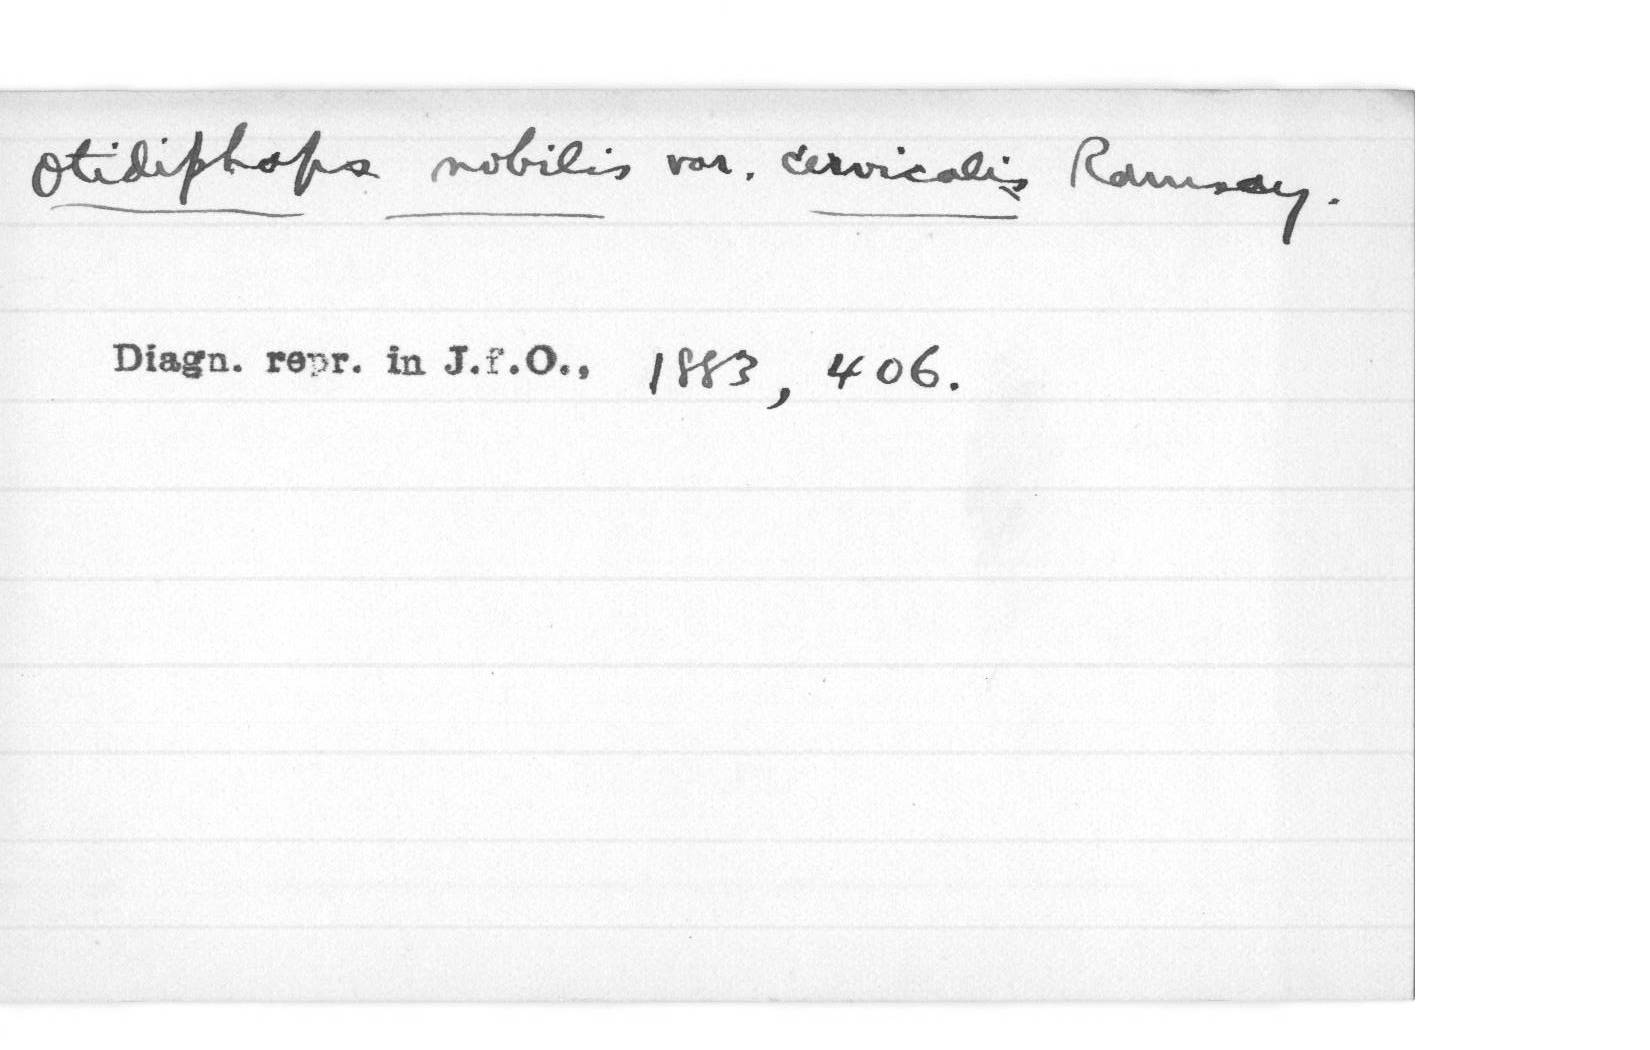 Otidiphaps nobilis var. cervicalis Ramsay.
Diagn. repr. in J.f.O., 1883, 406.